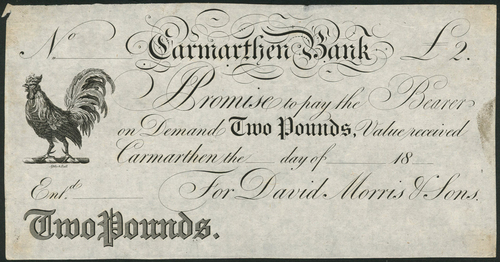 No Carmarthen Bank £2.
I Promise to pay the Bearer
on Demand Two Pounds, Value received
Carmarthen the day of 18
Ent.d For David Morris & Sons.
Two Pounds.